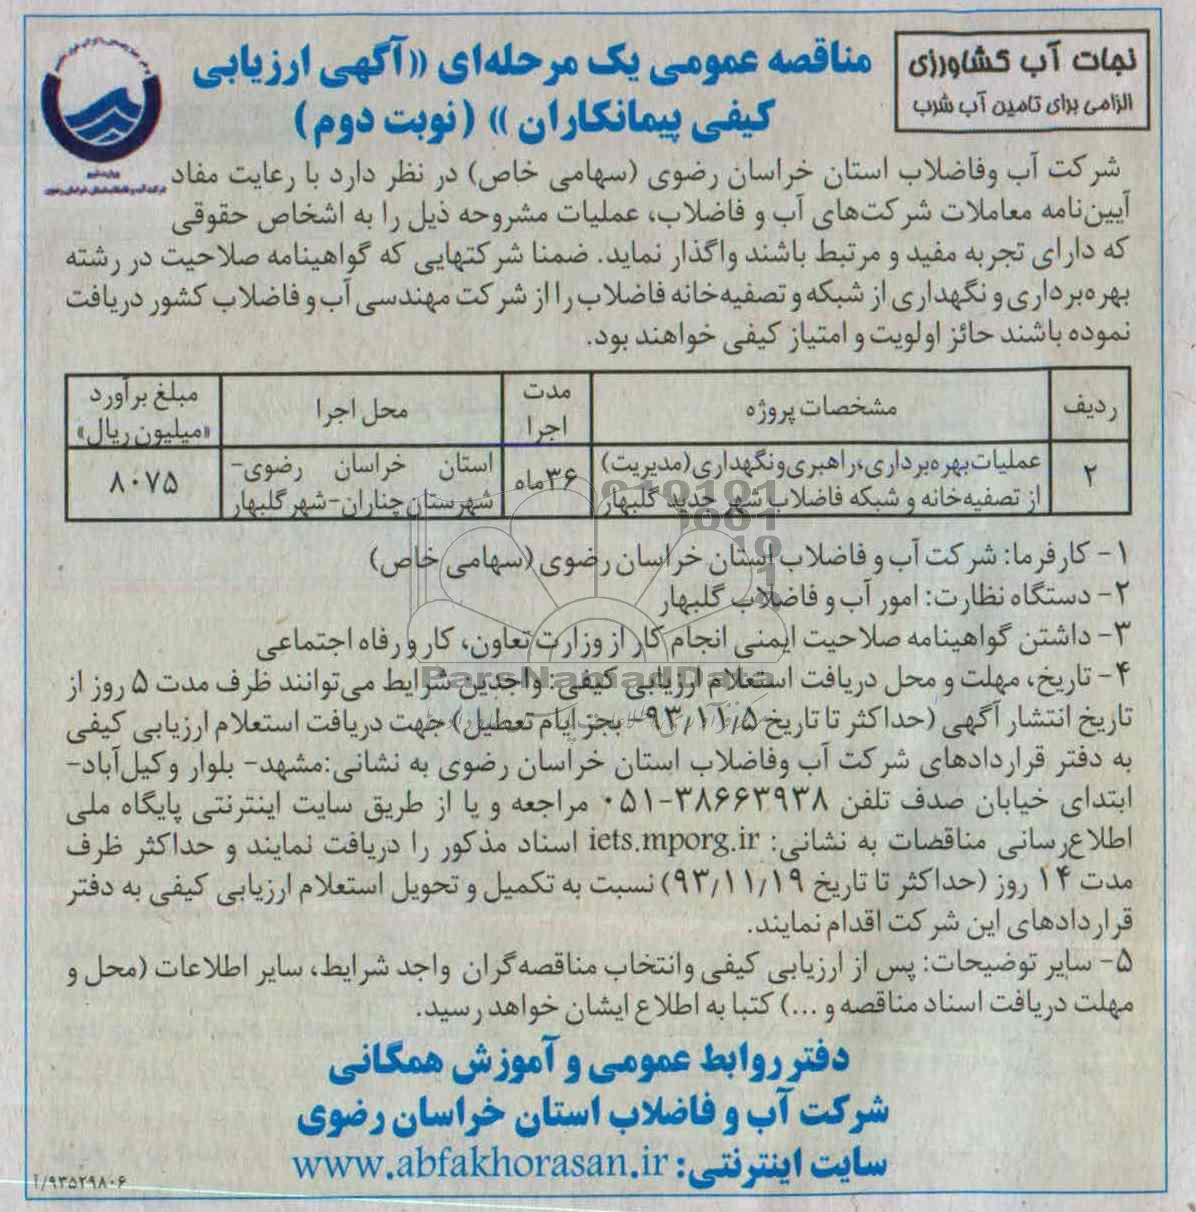 نجات آب کشاورزی
الزامی برای تامین آب شرب
مناقصه عمومی یک مرحله‌ای «آگهی ارزیابی
کیفی پیمانکاران» (نوبت دوم)
شرکت آب وفاضلاب استان خراسان رضوی (سهامی خاص) در نظر دارد با رعایت مفاد
آیین‌نامه معاملات شرکت‌های آب و فاضلاب، عملیات مشروحه ذیل را به اشخاص حقوقی
که دارای تجربه مفید و مرتبط باشند واگذار نماید. ضمنا شرکتهایی که گواهینامه صلاحیت در رشته
بهره‌برداری و نگهداری از شبکه و تصفیه‌خانه فاضلاب را از شرکت مهندسی آب و فاضلاب کشور دریافت
نموده باشند حائز اولویت و امتیاز کیفی خواهند بود.
ردیف
مشخصات پروژه
مدت
اجرا
محل اجرا
مبلغ برآورد
«میلیون ریال»
۲
عملیات بهره‌برداری، راهبری و نگهداری (مدیریت)
از تصفیه‌خانه و شبکه فاضلاب شهر جدید گلبهار
۳۶ماه
استان خراسان رضوی-
شهرستان چناران- شهر گلبهار
۸۰۷۵
۱- کارفرما: شرکت آب و فاضلاب استان خراسان رضوی (سهامی خاص)
۲- دستگاه نظارت: امور آب و فاضلاب گلبهار
۳- داشتن گواهینامه صلاحیت ایمنی انجام کار از وزارت تعاون، کار و رفاه اجتماعی
۴- تاریخ، مهلت و محل دریافت استعلام ارزیابی کیفی: واجدین شرایط می‌توانند ظرف مدت ۵ روز از
تاریخ انتشار آگهی (حداکثر تا تاریخ ۹۳/۱۱/۵- بجز ایام تعطیل) جهت دریافت استعلام ارزیابی کیفی
به دفتر قراردادهای شرکت آب وفاضلاب استان خراسان رضوی به نشانی:مشهد- بلوار وکیل‌آباد-
ابتدای خیابان صدف تلفن ۳۸۶۶۳۹۳۸-۰۵۱ مراجعه و یا از طریق سایت اینترنتی پایگاه ملی
اطلاع‌رسانی مناقصات به نشانی: iets.mporg.ir اسناد مذکور را دریافت نمایند و حداکثر ظرف
مدت ۱۴ روز (حداکثر تا تاریخ ۹۳/۱۱/۱۹) نسبت به تکمیل و تحویل استعلام ارزیابی کیفی به دفتر
قراردادهای این شرکت اقدام نمایند.
۵- سایر توضیحات: پس از ارزیابی کیفی وانتخاب مناقصه‌گران واجد شرایط، سایر اطلاعات (محل و
مهلت دریافت اسناد مناقصه و ...) کتبا به اطلاع ایشان خواهد رسید.
دفتر روابط عمومی و آموزش همگانی
شرکت آب و فاضلاب استان خراسان رضوی
سایت اینترنتی: www.abfakhorasan.ir
۹۳۵۲۹۸۰۶/آ
ParsNamadData